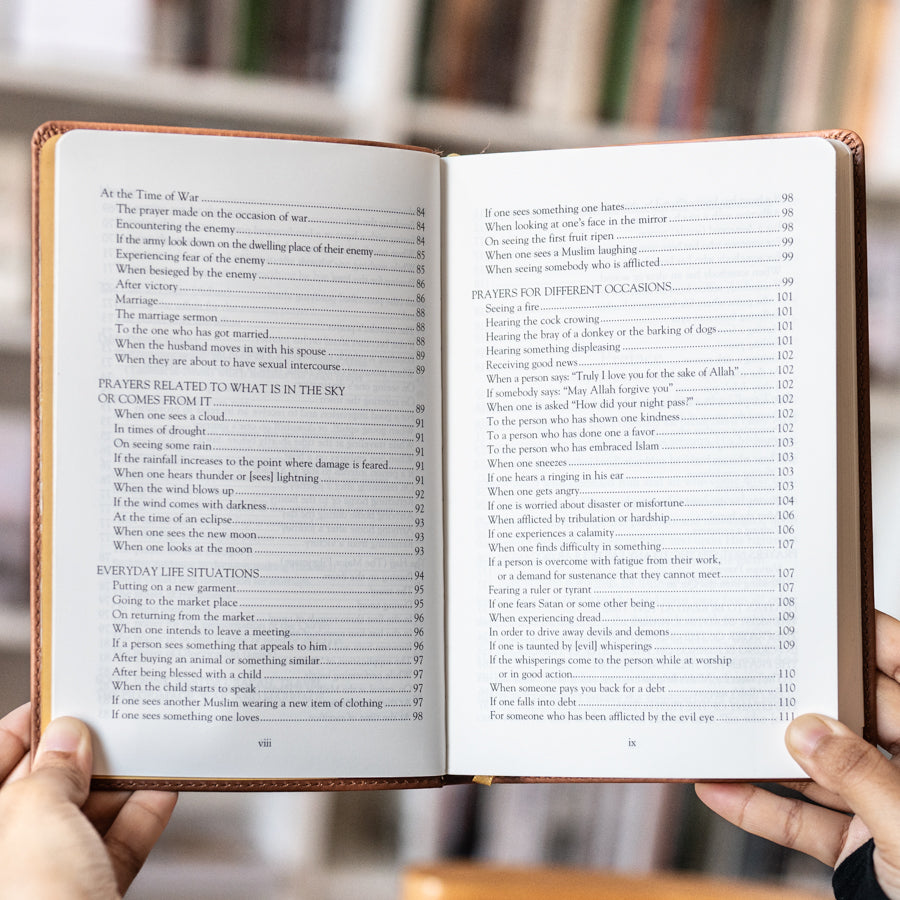 At the Time of War ........ 84
The prayer made on the occasion of war ........ 84
Encountering the enemy ........ 84
If the army look down on the dwelling place of their enemy ........ 85
Experiencing fear of the enemy ........ 85
When besieged by the enemy ........ 86
After victory ........ 86
Marriage ........ 88
The marriage sermon ........ 88
To the one who has got married ........ 88
When the husband moves in with his spouse ........ 89
When they are about to have sexual intercourse ........ 89
PRAYERS RELATED TO WHAT IS IN THE SKY
OR COMES FROM IT ........ 89
When one sees a cloud ........ 91
In times of drought ........ 91
On seeing some rain ........ 91
If the rainfall increases to the point where damage is feared ........ 91
When one hears thunder or [sees] lightning ........ 91
When the wind blows up ........ 92
If the wind comes with darkness ........ 92
At the time of an eclipse ........ 93
When one sees the new moon ........ 93
When one looks at the moon ........ 93
EVERYDAY LIFE SITUATIONS ........ 94
Putting on a new garment ........ 95
Going to the market place ........ 95
On returning from the market ........ 96
When one intends to leave a meeting ........ 96
If a person sees something that appeals to him ........ 96
After buying an animal or something similar ........ 97
After being blessed with a child ........ 97
When the child starts to speak ........ 97
If one sees another Muslim wearing a new item of clothing ........ 97
If one sees something one loves ........ 98
viii
If one sees something one hates ........ 98
When looking at one's face in the mirror ........ 98
On seeing the first fruit ripen ........ 98
When one sees a Muslim laughing ........ 99
When seeing somebody who is afflicted ........ 99
PRAYERS FOR DIFFERENT OCCASIONS ........ 99
Seeing a fire ........ 101
Hearing the cock crowing ........ 101
Hearing the bray of a donkey or the barking of dogs ........ 101
Hearing something displeasing ........ 101
Receiving good news ........ 102
When a person says: "Truly I love you for the sake of Allah" ........ 102
If somebody says: "May Allah forgive you" ........ 102
When one is asked "How did your night pass?" ........ 102
To the person who has shown one kindness ........ 102
To a person who has done one a favor ........ 102
To the person who has embraced Islam ........ 103
When one sneezes ........ 103
If one hears a ringing in his ear ........ 103
When one gets angry ........ 103
If one is worried about disaster or misfortune ........ 104
When afflicted by tribulation or hardship ........ 106
If one experiences a calamity ........ 106
When one finds difficulty in something ........ 107
If a person is overcome with fatigue from their work,
or a demand for sustenance that they cannot meet ........ 107
Fearing a ruler or tyrant ........ 107
If one fears Satan or some other being ........ 108
When experiencing dread ........ 109
In order to drive away devils and demons ........ 109
If one is taunted by [evil] whisperings ........ 109
If the whisperings come to the person while at worship
or in good action ........ 110
When someone pays you back for a debt ........ 110
If one falls into debt ........ 110
For someone who has been afflicted by the evil eye ........ 111
ix